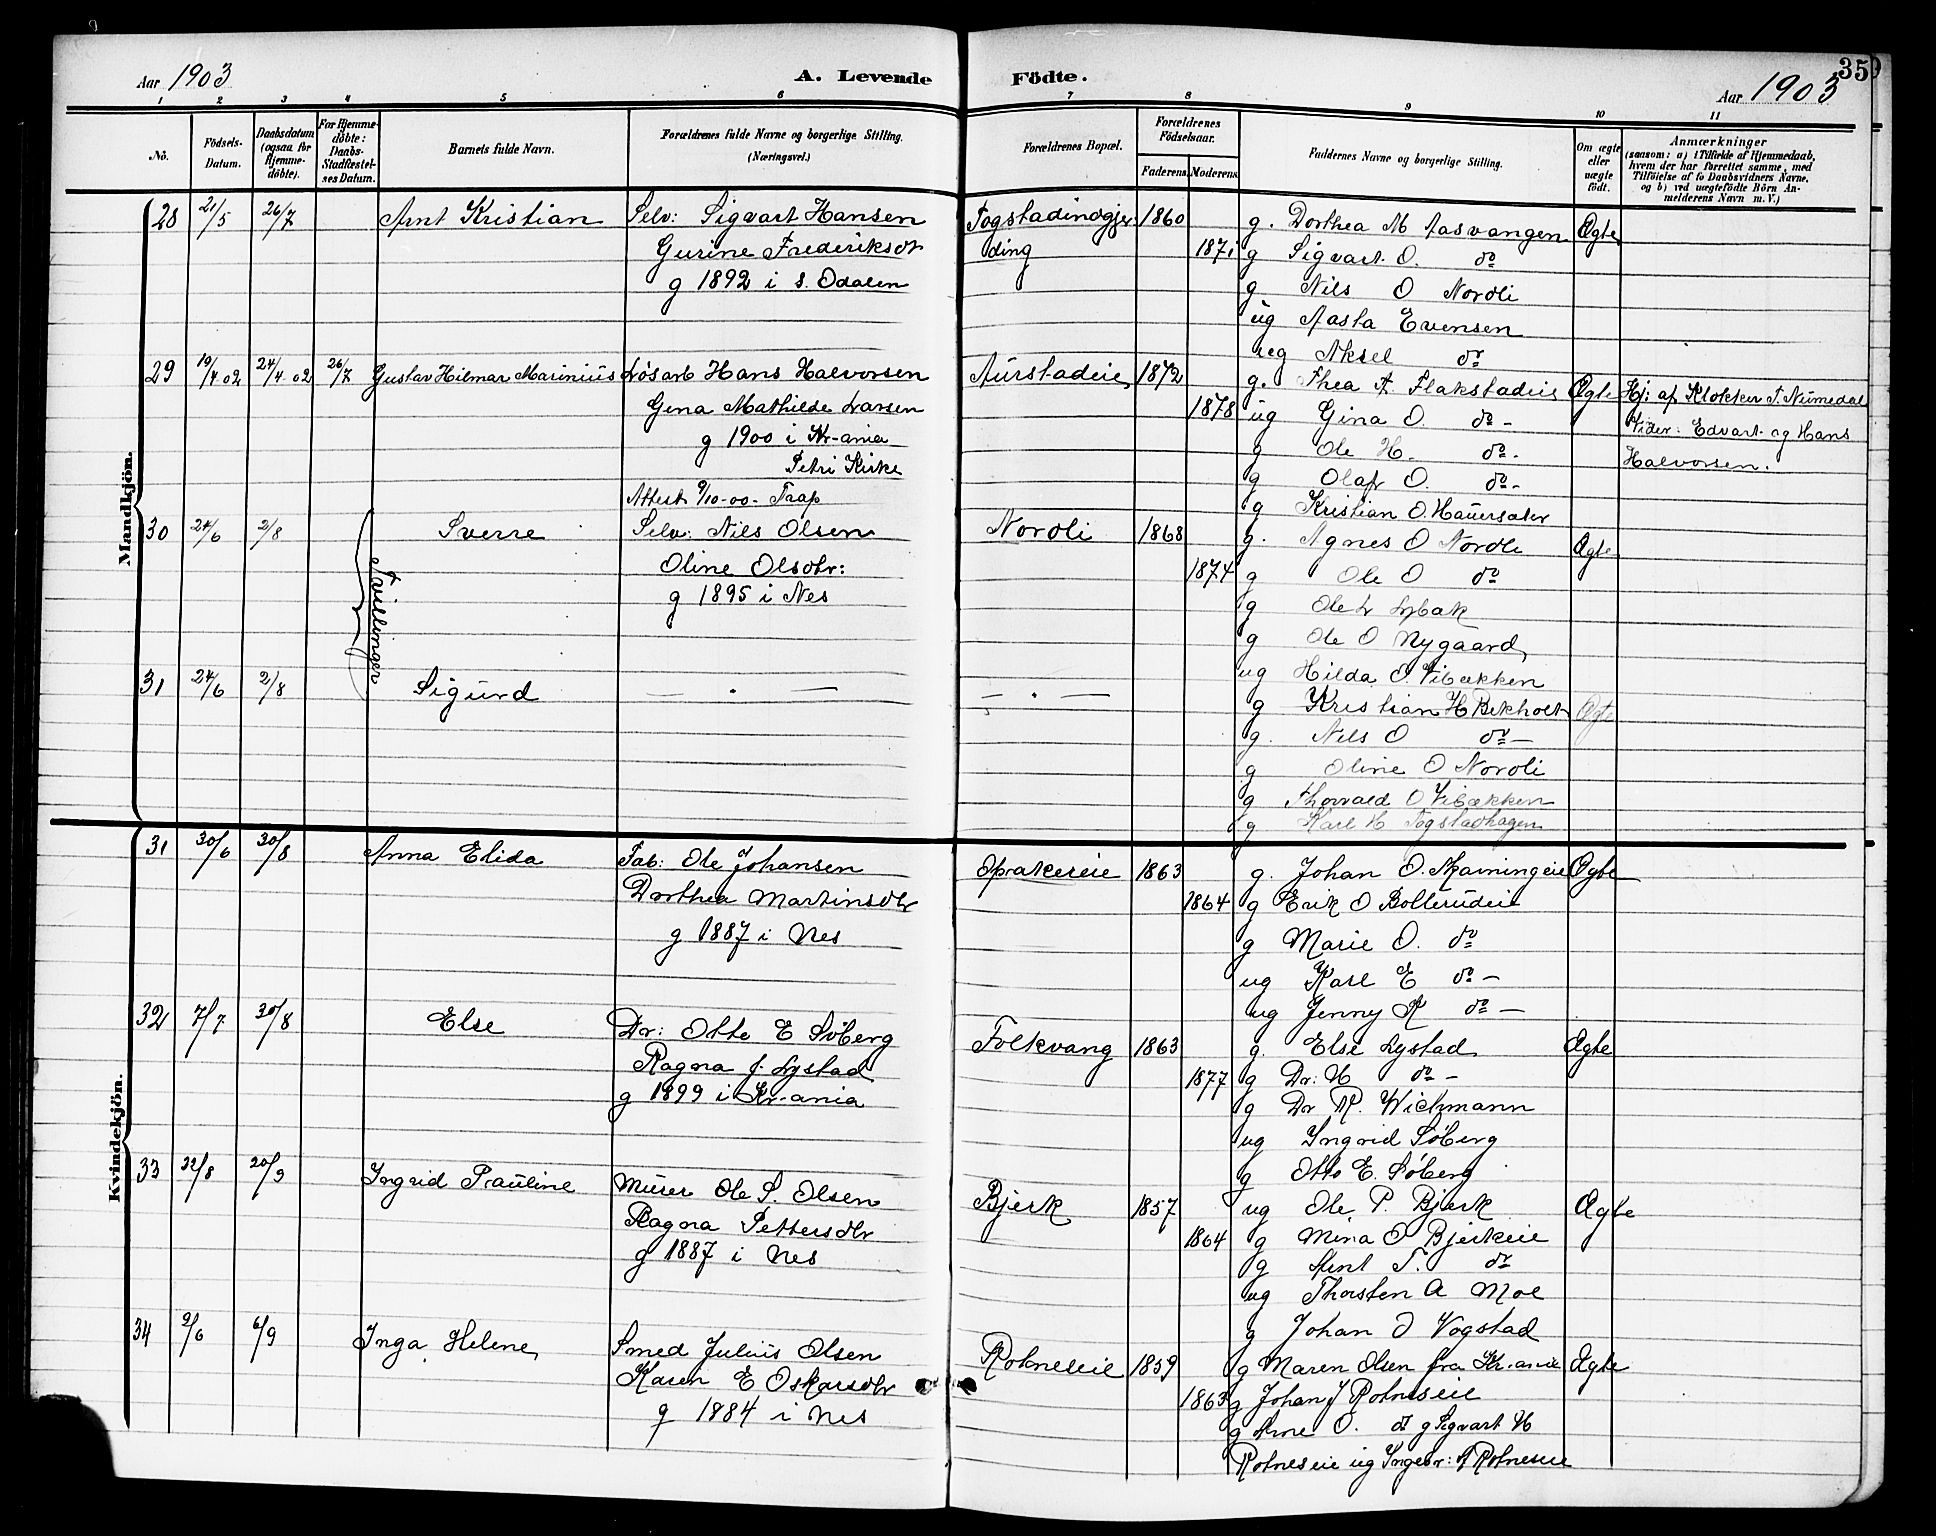 Aar 1903
A. Levende Födte.
Aar 1903
35
1 2 3 4 5 6 7 8 9 10 11
No.
Födsels-Datum.
Daabsdatum (ogsaa for Hjemme-döbte).
For Hjemme-döbte: Daabs-Stadfæstel-ses Datum.
Barnets fulde Navn.
Forældrenes fulde Navne og borgerlige Stilling. (Næringsvei.)
Forældrenes Bopæl.
Forældrenes Födselsaar.
Faderens. Moderens.
Faddernes Navne og borgerlige Stilling.
Om ægte eller uægte födt.
Anmærkninger
(saasom: a) i Tilfælde af Hjemmedaab, hvem der har forrettet samme, med Tilföielse af to Daabsvidners Navne, og b) ved uægtefödte Börn An-melderens Navn m. V.)
Mandkjön.
28 21/5 26/7 Arnt Kristian Selv: Sigvart Hansen Togstadindgjer- 1860 g. Dorthea M Aasvangen Ægte
Gurine Frederiksdt ding 1871 g Sigvart O. do
g 1892 i S. Odalen g Nils O Nordli
ug Aasta Evensen
ug Aksel do
29 19/4 02 24/4 02 26/7 Gustav Hilmar Marinius Løsarb Hans Halvorsen Aurstadeie 1872 g. Thea A. Flakstadeie Ægte Hj: af Klokker T. Numedal
Gina Mathilde Larsen 1878 ug Gina O do - Vidner: Edvart og Hans
g 1900 i Kr-ania g Ole H. do - Halvorsen.
Petri Kirke g Olaf O. do -
Attest 9/10-00- Traap g Kristian O. Hauersæter
30 24/6 2/8 Sverre Selv: Nils Olsen Nordli 1868 g. Agnes O Nordli Ægte
Tvillinger
Oline Olsdtr: 1874 g Ole O do
g 1895 i Nes g Ole L Lybak
g Ole O Nygaard
ug Hilda O. Vibækken
31 24/6 2/8 Sigurd — . — — . — g Kristian H Bekholt Ægte
g. Nils O do —
g Oline O Nordli
g Thorvald O Vibækken
g Karl H Togstadhagen
Kvindekjön.
31 30/6 30/8 Anna Elida Fab: Ole Johansen Opakereie 1863 g. Johan O. Ægte
Dorthea Martinsdtr 1864 g Erik O Bollerudeie
g 1887 i Nes g Marie O. do
ug Karl E do —
ug Jenny K do —
32 7/7 30/8 Else Dr: Otto E Søberg Folkvang 1863 g. Else Lystad Ægte
Ragna J. Lystad 1877 g Dr: H do -
g 1899 i Kr-ania g Dr R. Wickmann
ug Yngrid Søberg
g Otto E. Søberg
33 22/8 20/9 Ingrid Pauline Murer Ole S. Olsen Bjerk 1857 ug Ole P. Bjerk Ægte
Ragna Pettersdtr 1864 g Mina O Bjerkeie
g 1887 i Nes g Arnt T. do
ug Thorsten A Moe
g Johan O Vogstad
34 9/6 6/9 Inga Helene Smed Julius Olsen Rotneseie 1859 g Maren Olsen fra Kr-ania Ægte
Karen E Oskarsdtr 1863 g Johan J Rotneseie
g 1884 i Nes g Arne O. do g Sigvart H
Rotneseie ug Ingebr: A Rotneseie